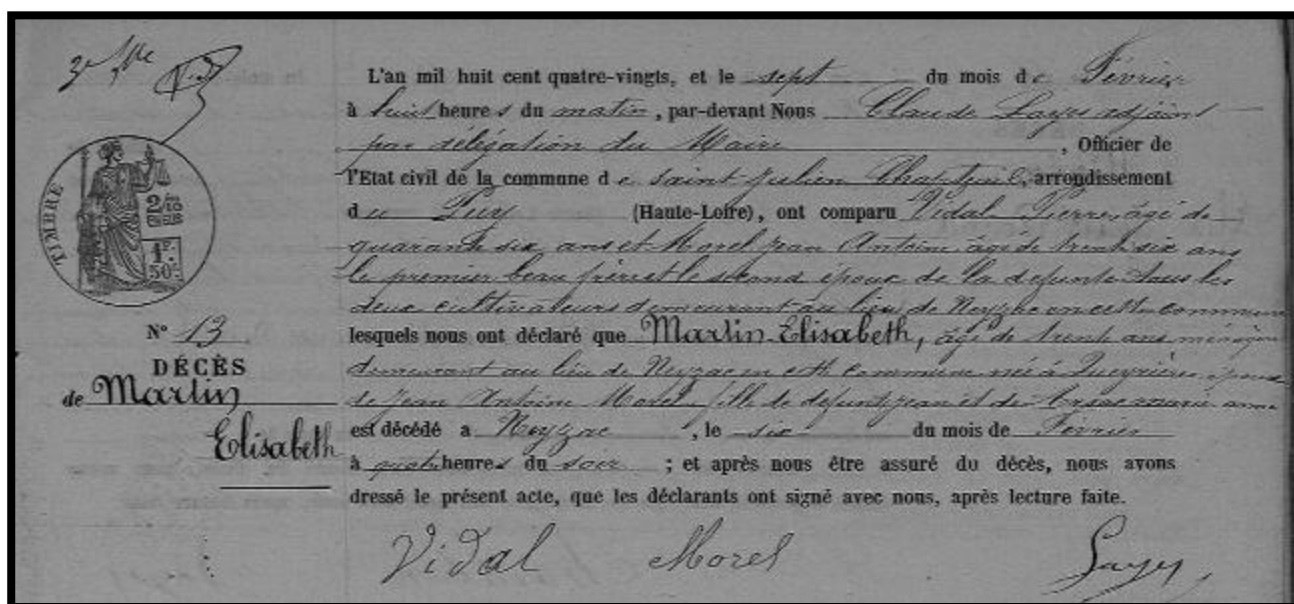 L'an mil huit cent quatre-vingts, et le sept du mois de Février
à huit heures du matin, par-devant Nous Claude Layes adjoint
par délégation du Maire, Officier de
l'Etat civil de la commune de saint julien Chapteuil, arrondissement
du Puy (Haute-Loire), ont comparu Vidal Pierre, âgé de
quarante six ans et Morel Jean Antoine âgé de trente six ans
le premier beau frère et le second époux de la defunte tous les
deux cultivateurs demeurant au lieu de Neyzac en cette commune
lesquels nous ont déclaré que Martin Elisabeth, âgé de trente ans ménagère
demeurant au lieu de Neyzac en cette commune née à Queyrières épouse
de Jean Antoine Morel fille de défunt jean et de marie anne
est décédé a Neyzac, le six du mois de Fevrier
à quatre heures du soir ; et après nous être assuré du décès, nous avons
dressé le présent acte, que les déclarants ont signé avec nous, après lecture faite.
Vidal Morel Layes
TIMBRE
2/10 EN SUS
1F. 50c.
N° 13
DÉCÈS
de Martin
Elisabeth